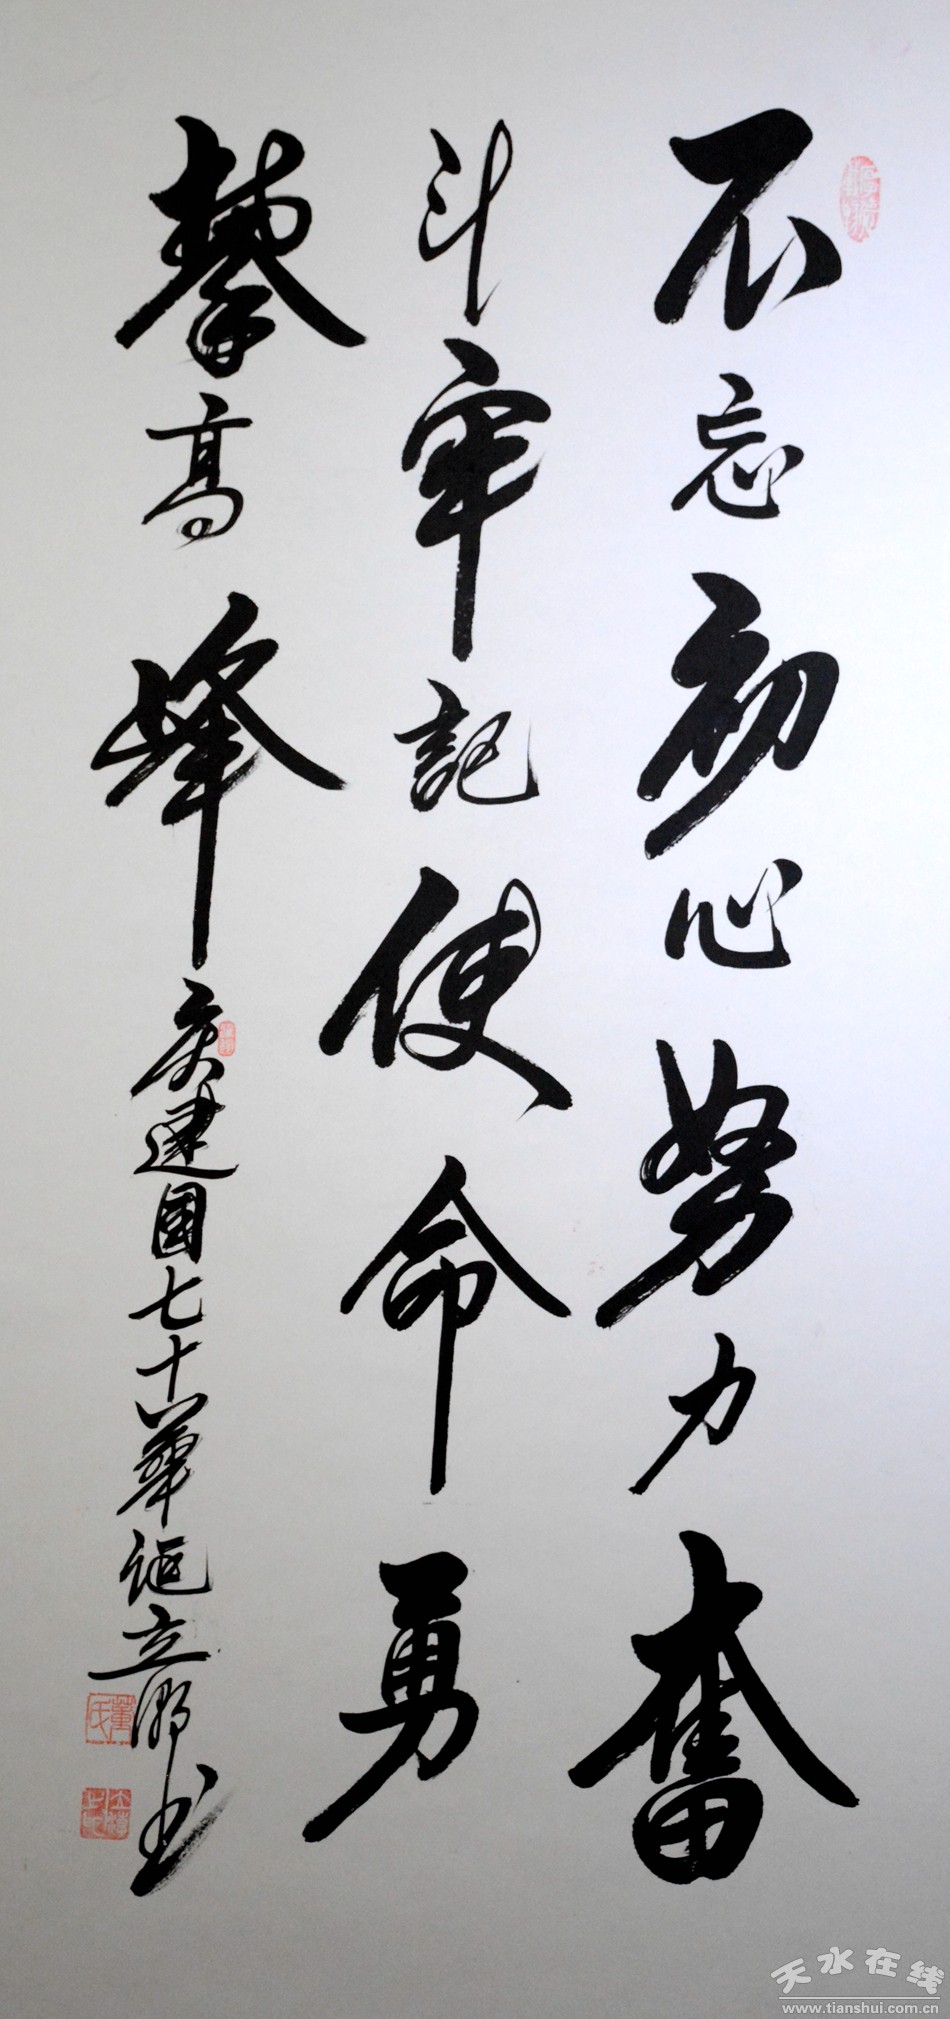 不忘初心努力奮
斗牢記使命勇
攀高峰
庆建國七十華诞立潮书
天水在线
www.tianshui.com.cn